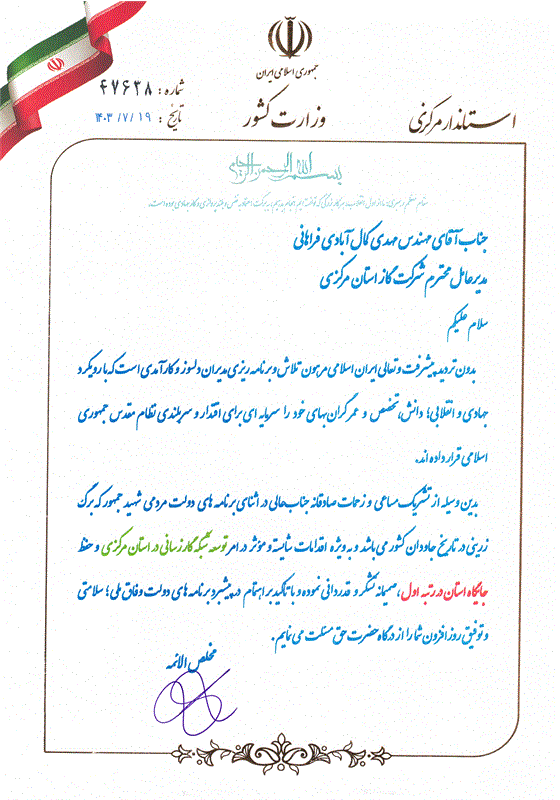 جمهوری اسلامی ایران
وزارت کشور
استاندار مرکزی
شماره : ۴۷۶۳۸
تاریخ : ۱۴۰۳/۷/۱۹
بسم الله الرحمن الرحیم
جناب آقای مهندس مهدی کمال آبادی فراهانی
مدیرعامل محترم شرکت گاز استان مرکزی
سلام علیکم
بدون تردید پیشرفت و تعالی ایران اسلامی مرهون تلاش و برنامه ریزی مدیران دلسوز و کارآمدی است که با رویکرد
جهادی و انقلابی؛ دانش، تخصص و عمر گران‌بهای خود را سرمایه ای برای اقتدار و سربلندی نظام مقدس جمهوری
اسلامی قرار داده اند.
بدین وسیله از تشریک مساعی و زحمات صادقانه جناب‌عالی در اثنای برنامه های دولت مردمی شهید جمهور که برگ
زرینی در تاریخ جاودان کشور می باشد و به ویژه اقدامات شایسته و مؤثر در امر توسعه شبکه گازرسانی در استان مرکزی و حفظ
جایگاه استان در رتبه اول، صمیمانه تشکر و قدردانی نموده و با تاکید بر اهتمام در پیشبرد برنامه های دولت وفاق ملی؛ سلامتی
و توفیق روز افزون شما را از درگاه حضرت حق مسئلت می نمایم.
مخلص الائمه